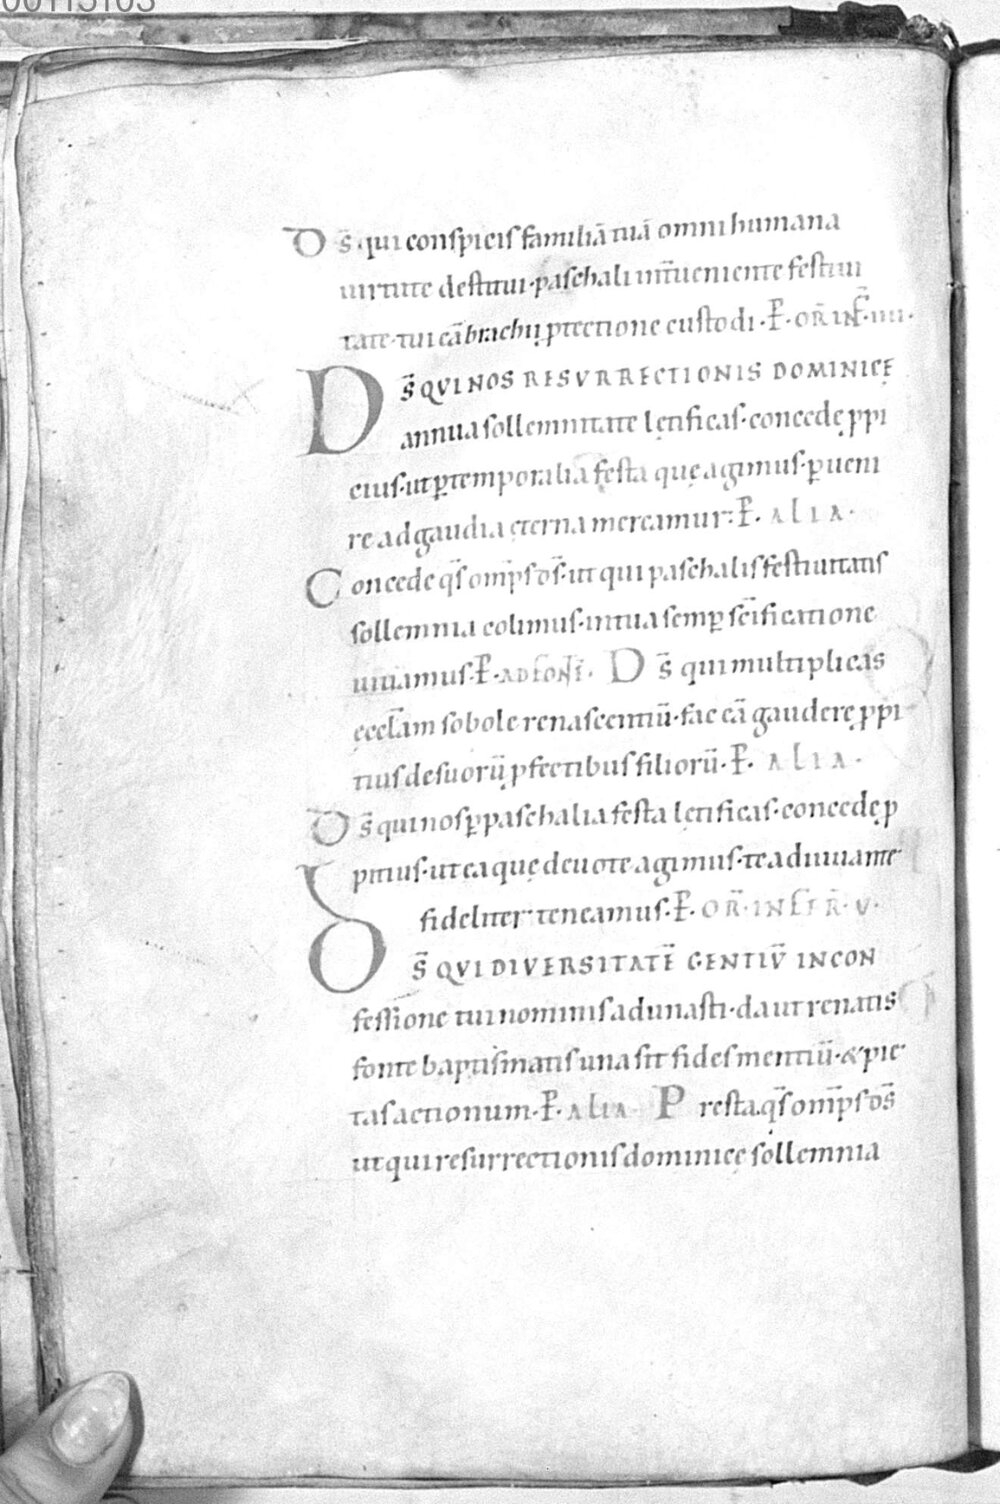 00115103
Ds̄ qui conspicis familiā tuā omni humana
uirtute destitui·paschali int̄ueniente festiui
tate·tui eā brachii ꝓtectione custodi·P̄·OR̄ IN F̄·IIII·
Ds̄ QVI NOS RESVRRECTIONIS DOMINICĘ
annua sollemnitate lętificas·concede ꝓpi
cius·ut p̄ temporalia festa quę agimus·p̄ueni
re ad gaudia ęterna mereamur·P̄·ALIA·
Concede qs̄ omp̄s ds̄·ut qui paschalis festiuitatis
sollemnia colimus·in tua semp̄ sc̄ificatione
uiuamus·P̄·AD FONT̄·Ds̄ qui multiplicas
ęccl̄am sobole renascentiū·fac eā gaudere ꝓpi
tius de suorū ꝓfectibus filiorū·P̄·ALIA·
Ds̄ qui nos p̄ paschalia festa lętificas·concede ꝓ
pitius·ut ea quę deuote agimus·te adiuuante
fideliter teneamus·P̄·OR̄·IN FER̄·V·
Ds̄ QVI DIVERSITATĒ GENTIV̄ IN CON
fessione tui nominis adunasti·da ut renatis
fonte baptismatis una sit fides mentiū·& pie
tas actionum·P̄·ALIA Presta qs̄ omp̄s ds̄
ut qui resurrectionis dominicę sollemnia